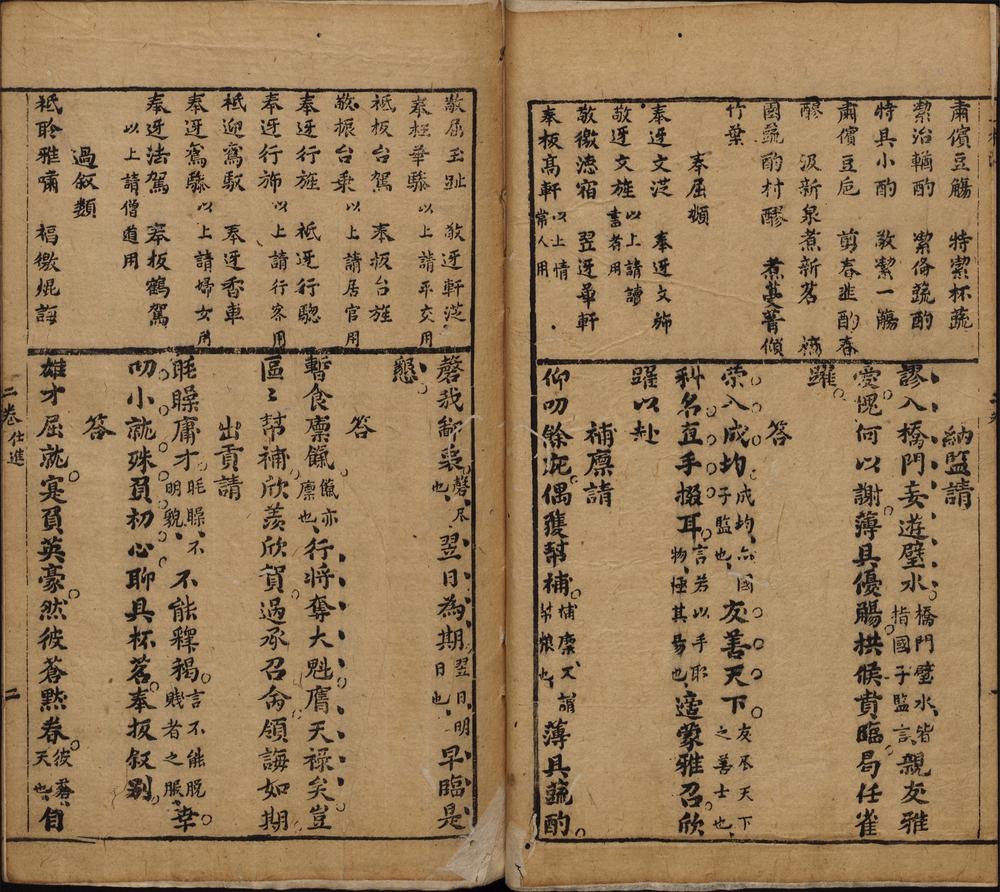 肅儐豆觴　特潔杯蔬
潔治鞠酌　潔俻蔬酌
特具小酌　敬潔一觴
肅儐豆卮　剪春韭酌春
醪　汲新泉煮新茗
園蔬酌村醪　煮蔓菁傾
竹葉
奉屈類
奉迓文茫　奉迓文斾
敬迓文旌　以上請讀書者用
敬徼德宿　翌迓華軒
奉扳高軒　以上情常人用
納監請
謬入橋門妄遊璧水橋門璧水皆指國子監言親友雅
愛愧何以謝薄具優觴拱候貴臨局任雀
躍
答
榮入成均成均亦國子監也友善天下友天下之善士也
科名直手掇耳言若以手取物極其易也適蒙雅召欣
躍以赴
補廩請
仰叨餘庇偶獲幫補補廩又謂幫粮也薄具蔬酌
敬屈玉趾　敬迓軒茫
奉枉華驂　以上請平交用
祗扳台駕　奉扳台旌
敬振台乘　以上請居官用
奉迓行旌　祗迓行驄
奉迓行斾　以上請行客用
祗迎鸞馭　奉迓香車
奉迓鸞驂　以上請婦女用
奉迓法駕　奉扳鶴駕
以上請僧道用
過叙類
祗聆雅嘯　福徼焜誨
罄我鄙衷罄尽也翌日為期翌日明日也早臨是
懇
答
暫食廩餼餼亦廩也行將奪大魁膺天祿矣豈
區〻幫補欣羨欣賀過承召俞領誨如期
出貢請
毷氉庸才毷氉不明貌不能釋褐言不能脫賤者之服幸
叨小就殊負初心聊具杯茗奉扳叙别
答
雄才屈就寔負英豪然彼蒼黙眷彼蒼天也自
二卷仕進
二